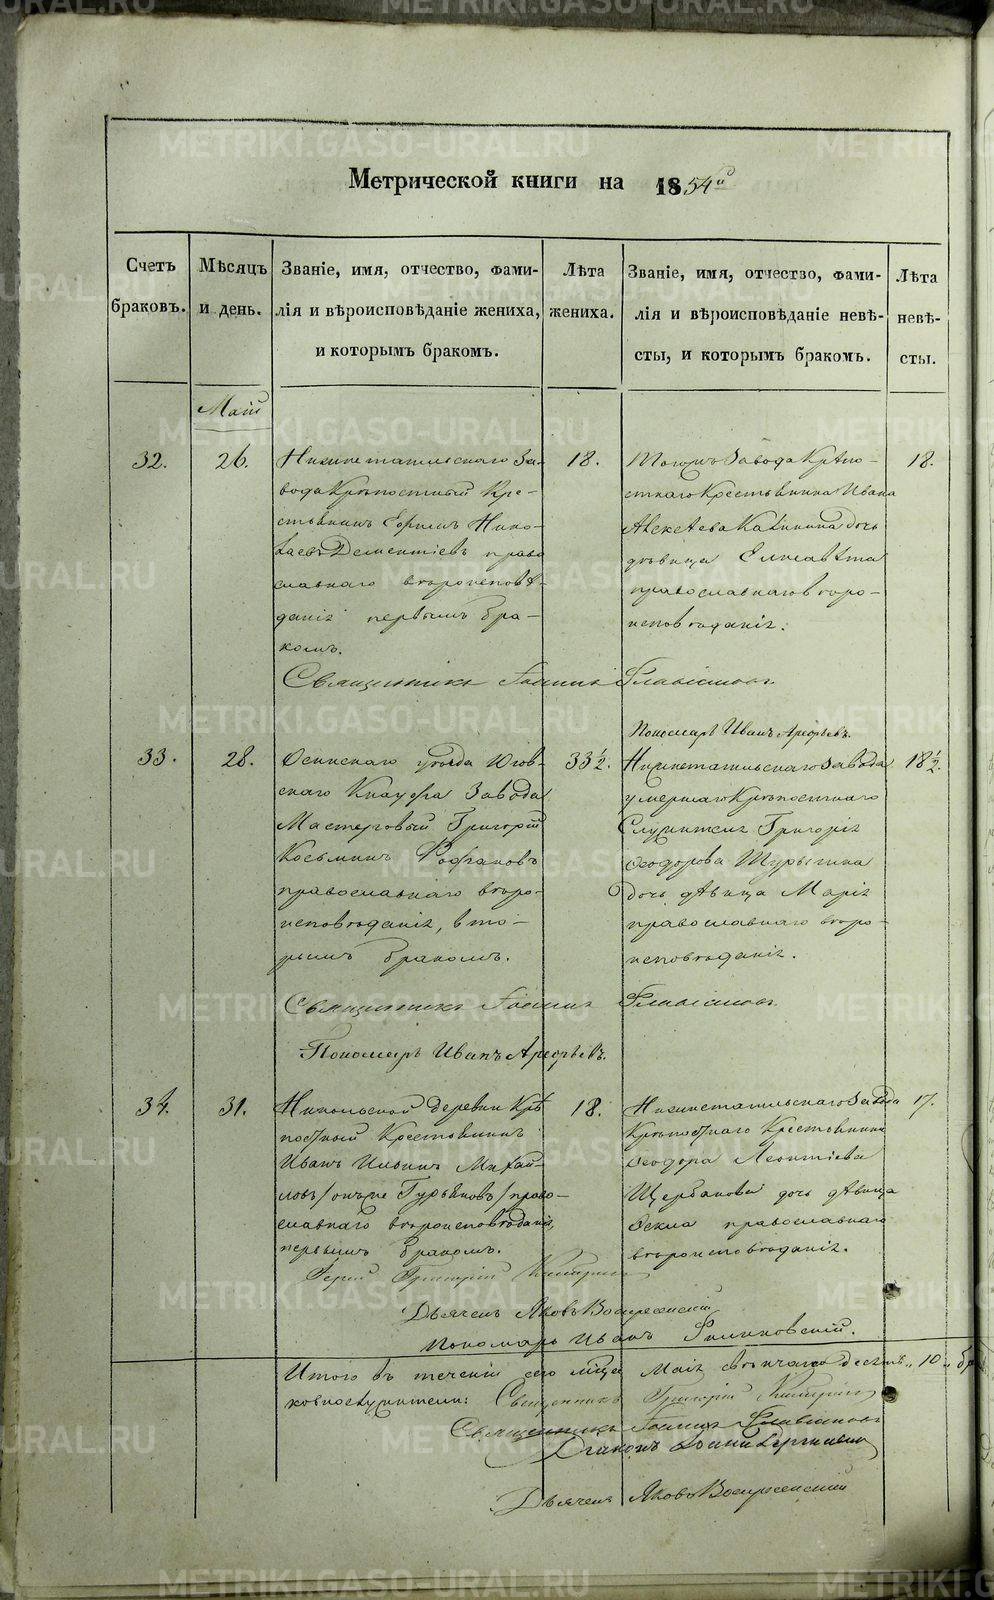 Метрической книги на 1854й
Счетъ браковъ.
Мѣсяцъ и день.
Званіе, имя, отчество, фами-
лія и вѣроисповѣданіе жениха,
и которымъ бракомъ.
Лѣта жениха.
Званіе, имя, отчество, фами-
лія и вѣроисповѣданіе невѣ-
сты, и которымъ бракомъ.
Лѣта невѣ-
сты.
Маій
32.
26.
Нижнетагильскаго За-
вода Крѣпостный Кре-
стьянинъ Ефимъ Нико-
лаевъ Дементіевъ право
славнаго вѣроисповѣ-
данія первымъ бра-
комъ.
18.
Тогожъ Завода Крѣпо-
стнаго Крестьянина Ивана
Алексѣева Калинина дочь
дѣвица Елисавѣта
православнаго вѣро-
исповѣданія.
18.
Священникъ Іоаннъ Флавіановъ
Пономарь Иванъ Арефьевъ.
33.
28.
Осинскаго уѣзда Югов-
скаго Кнауфа Завода
Мастеровый Григорій
Косьминъ
православнаго вѣро-
исповѣданія, вто-
рымъ бракомъ.
33½.
Нижнетагильскаго Завода
умершаго Крѣпостнаго
Служителя Григорія
Ѳеодорова Шурыгина
дочь дѣвица Марія
православнаго вѣро-
исповѣданія.
18½.
Священникъ Іоаннъ Флавіановъ
Пономарь Иванъ Арефьевъ.
34.
31.
Никольской деревни Крѣ
постный Крестьянинъ
Иванъ Ильинъ Михай-
ловъ /онъже Гурьяновъ/ право-
славнаго вѣроисповѣданія,
первымъ бракомъ.
18.
Нижнетагильскаго Завода
Крѣпостнаго Крестьянина
Ѳеодора Леонтіева
Щербакова дочь дѣвица
Ѳекла православнаго
вѣроисповѣданія.
17.
Іерей Григорій
Дьячекъ Яковъ Воскресенскій
Пономарь Иванъ
Итого въ теченіи сего мѣсяца Маія свѣнчано десять „10„ бра
ковъ
Священникъ Григорій
Священникъ Іоаннъ Флавіановъ
Діаконъ Іоаннъ
Дьячекъ Яковъ Воскресенскій
METRIKI.GASO-URAL.RU